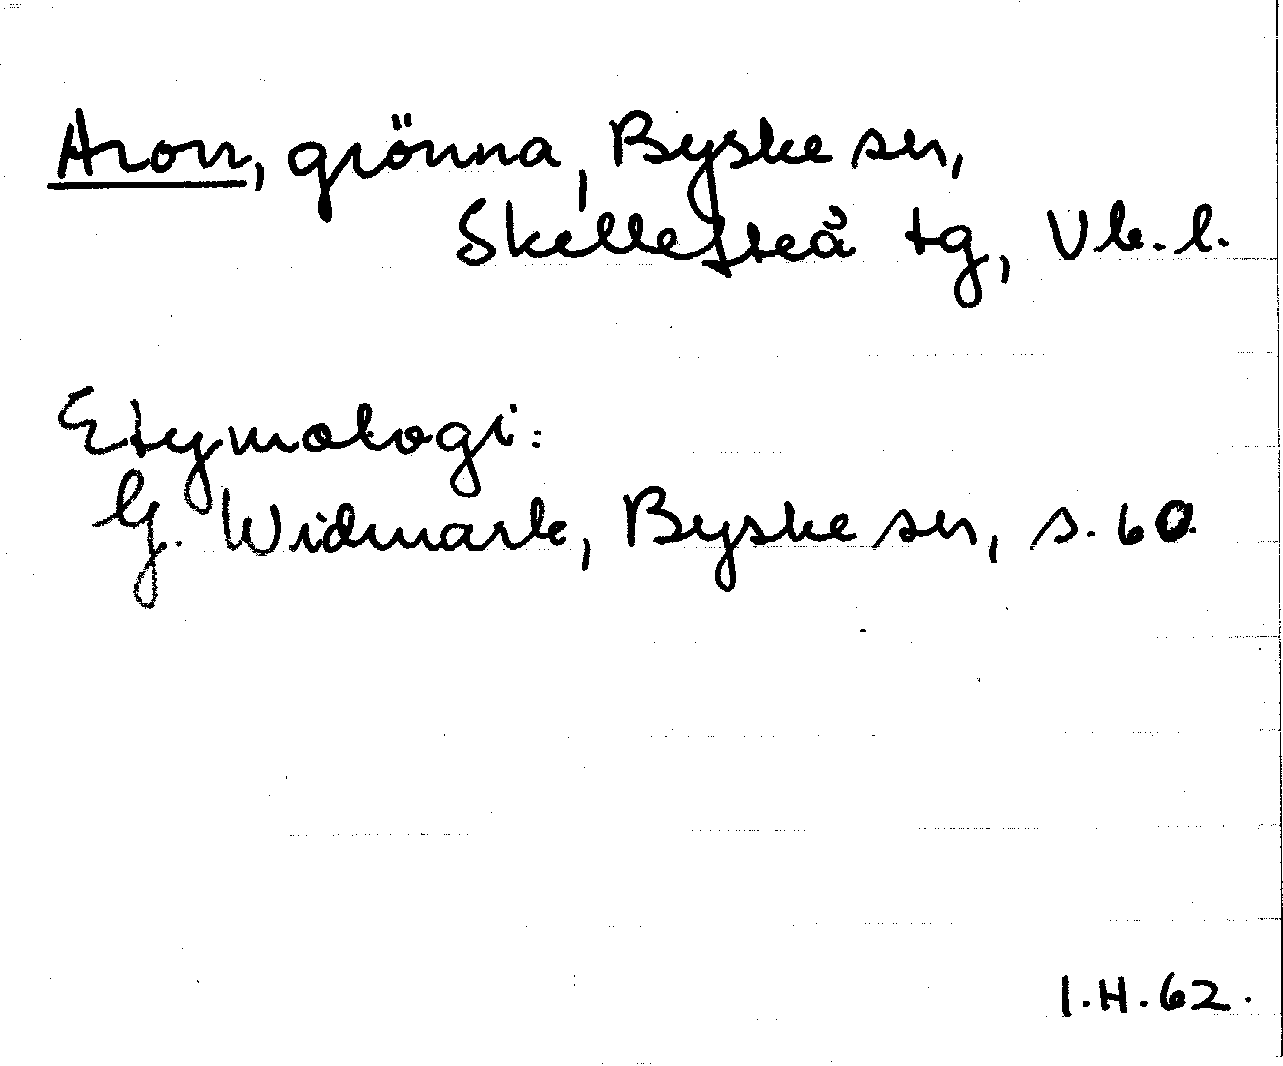 Aron, grönna, Byske sn,
Skellefteå tg, Vb. l.
Etymologi:
G. Widmark, Byske sn, s. 60.
I.H. 62.